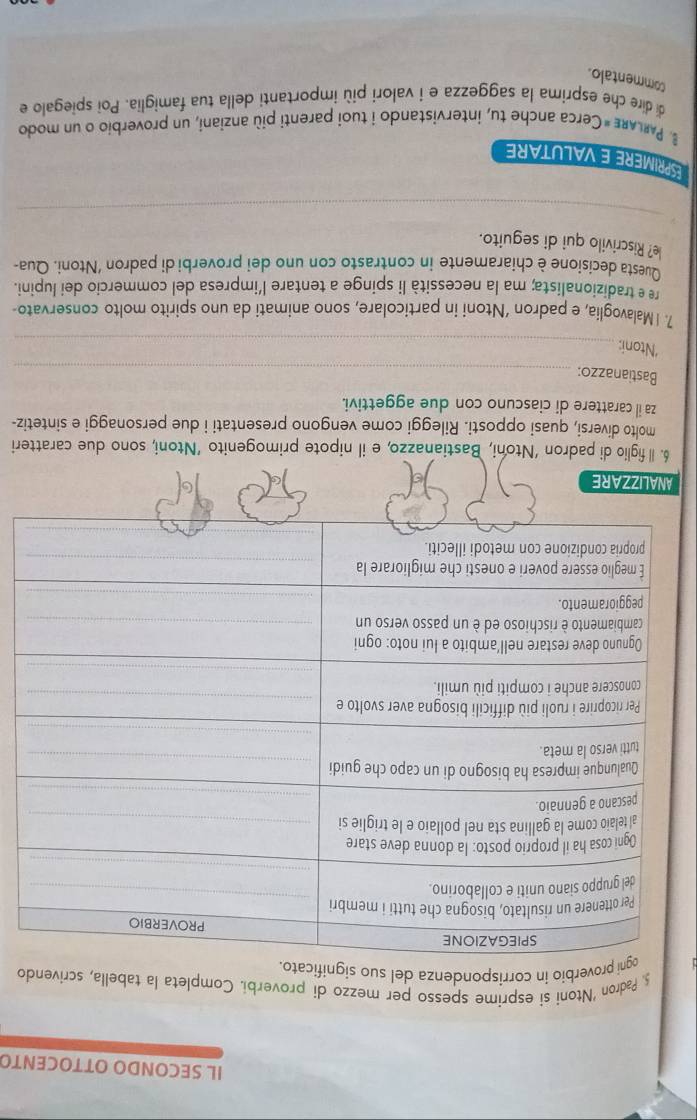 IL SECONDO OTTOCENTO
5. Padron 'Ntoni si esprime spesso per mezzo di proverbi. Completa la tabella, scrivendo
ogni proverbio in corrispondenza del suo significato.
SPIEGAZIONE
PROVERBIO
Per ottenere un risultato, bisogna che tutti i membri
del gruppo siano uniti e collaborino.
Ogni cosa ha il proprio posto: la donna deve stare
al telaio come la gallina sta nel pollaio e le triglie si
pescano a gennaio.
Qualunque impresa ha bisogno di un capo che guidi
tutti verso la meta.
Per ricoprire i ruoli più difficili bisogna aver svolto e
conoscere anche i compiti più umili.
Ognuno deve restare nell'ambito a lui noto: ogni
cambiamento è rischioso ed è un passo verso un
peggioramento.
È meglio essere poveri e onesti che migliorare la
propria condizione con metodi illeciti.
ANALIZZARE
6. Il figlio di padron 'Ntoni, Bastianazzo, e il nipote primogenito 'Ntoni, sono due caratteri
molto diversi, quasi opposti. Rileggi come vengono presentati i due personaggi e sintetiz-
za il carattere di ciascuno con due aggettivi.
Bastianazzo:
'Ntoni:
7. I Malavoglia, e padron 'Ntoni in particolare, sono animati da uno spirito molto conservato-
re e tradizionalista; ma la necessità li spinge a tentare l'impresa del commercio dei lupini.
Questa decisione è chiaramente in contrasto con uno dei proverbi di padron 'Ntoni. Qua-
le? Riscrivilo qui di seguito.
ESPRIMERE E VALUTARE
8. PARLARE • Cerca anche tu, intervistando i tuoi parenti più anziani, un proverbio o un modo
di dire che esprima la saggezza e i valori più importanti della tua famiglia. Poi spiegalo e
commentalo.